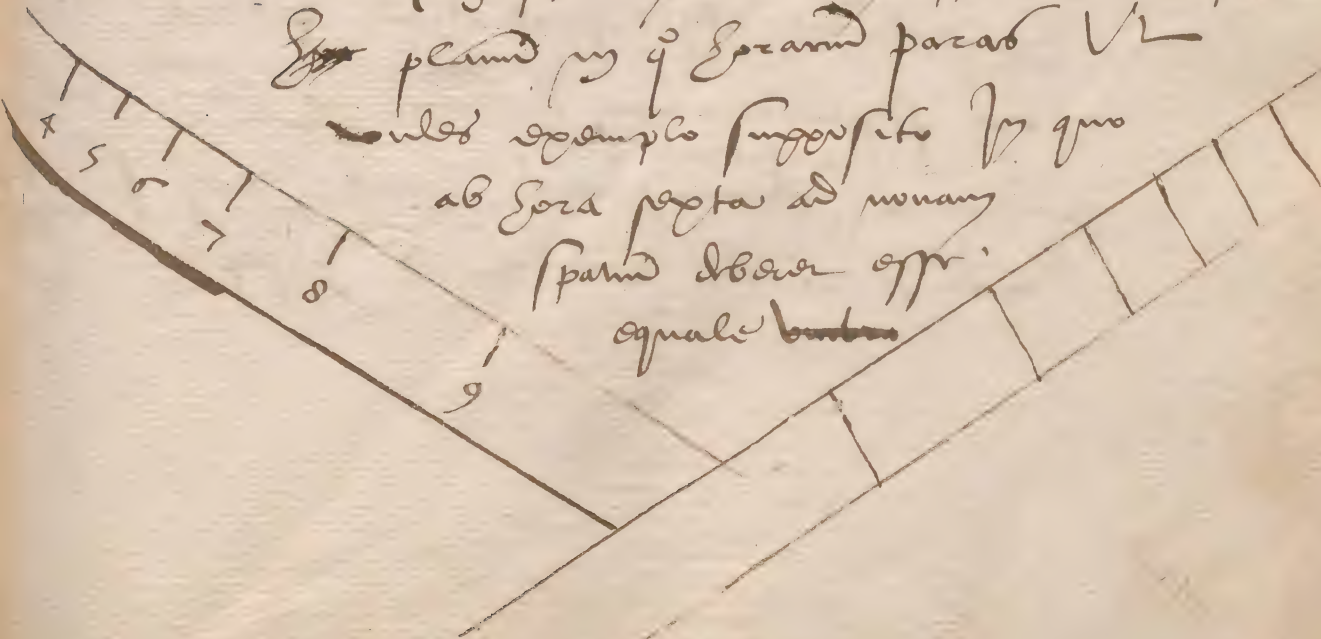 planū in q° horariū paras Vt
vides exemplo supposito In quo
ab hora sexta ad nonam
spatiū deberet esse
equale
4
5
6
7
8
9